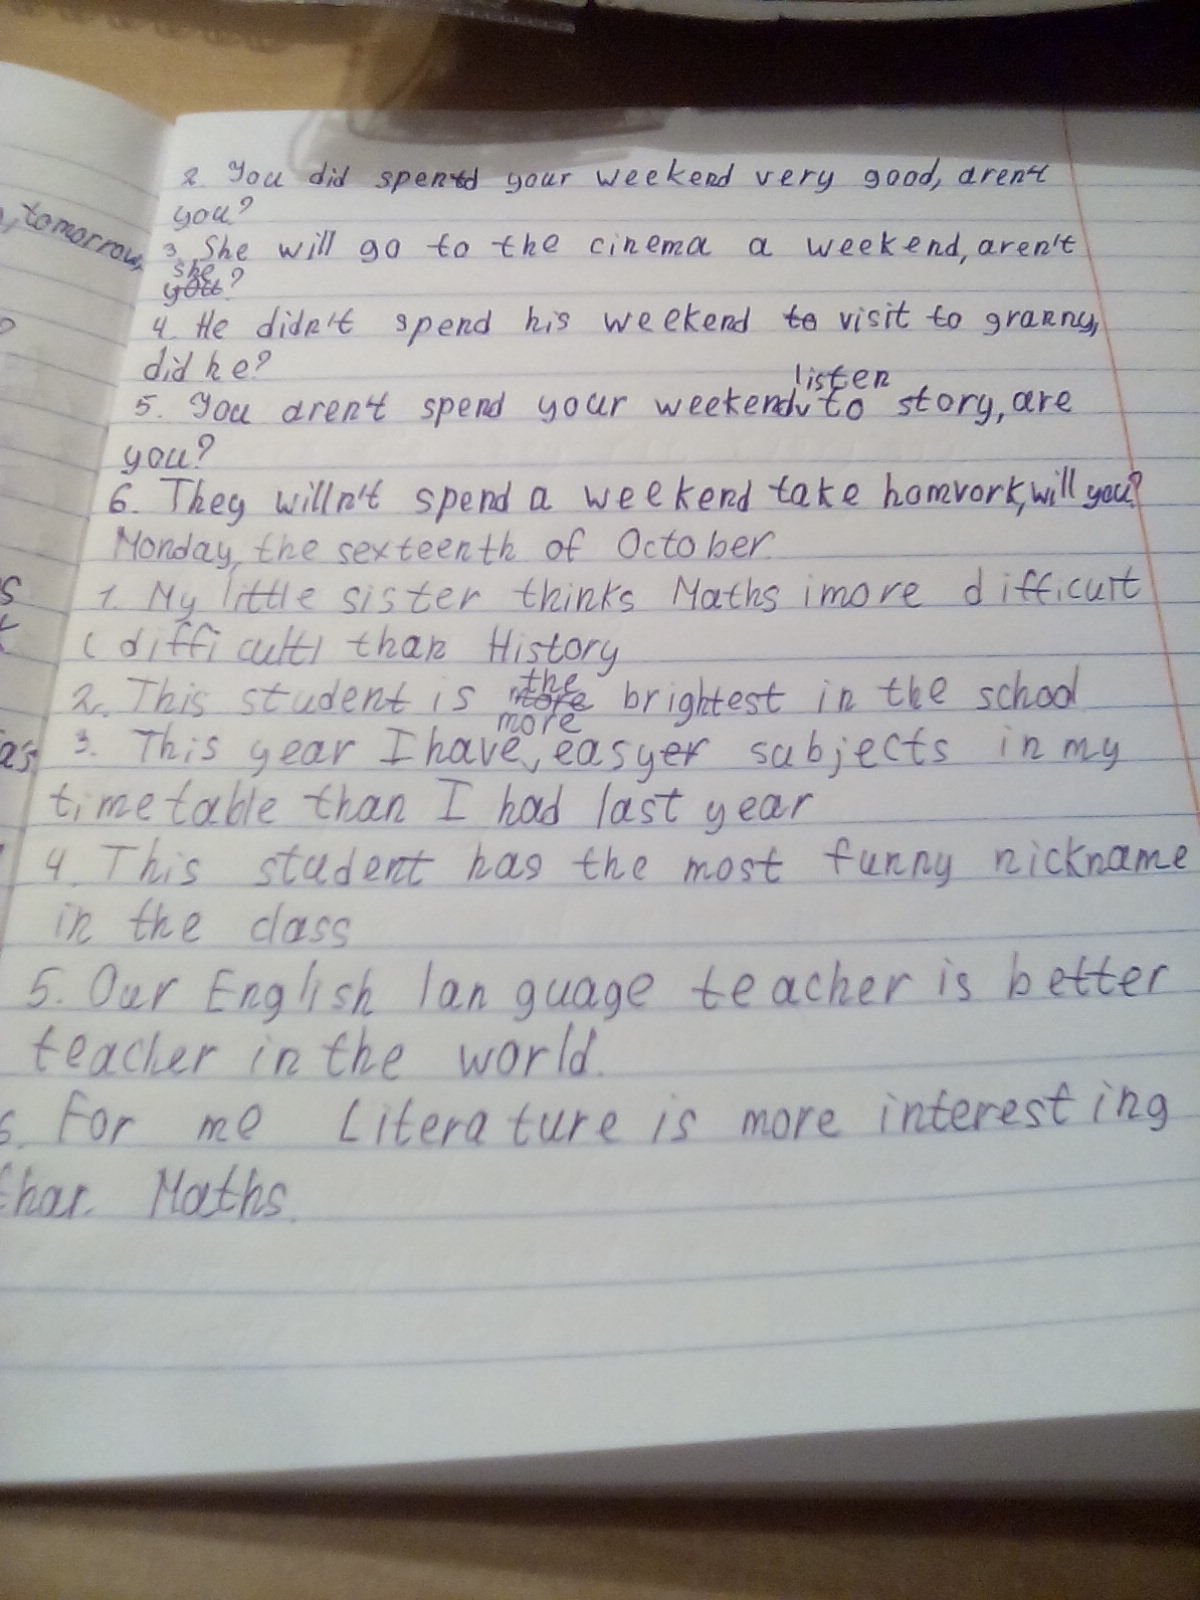 2. You did spend your weekend very good, aren't
you?
tomorrow,
3. She will go to the cinema a weekend, aren't
she
you?
4. He didn't spend his weekend to visit to granny,
did he?
listen
5. You aren't spend your weekend to story, are
you?
6. They willn't spend a weekend take homvork, will you?
Monday, the sexteenth of October.
1. My little sister thinks Maths imore difficult
(difficult) than History
the
2. This student is more brightest in the school
more
3. This year I have easyer subjects in my
as
timetable than I had last year
4. This student has the most funny nickname
in the class
5. Our English language teacher is better
teacher in the world.
6. For me Literature is more interesting
than Maths.